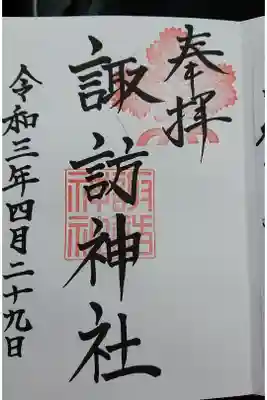 奉拝
諏訪神社
令和三年四月二十九日